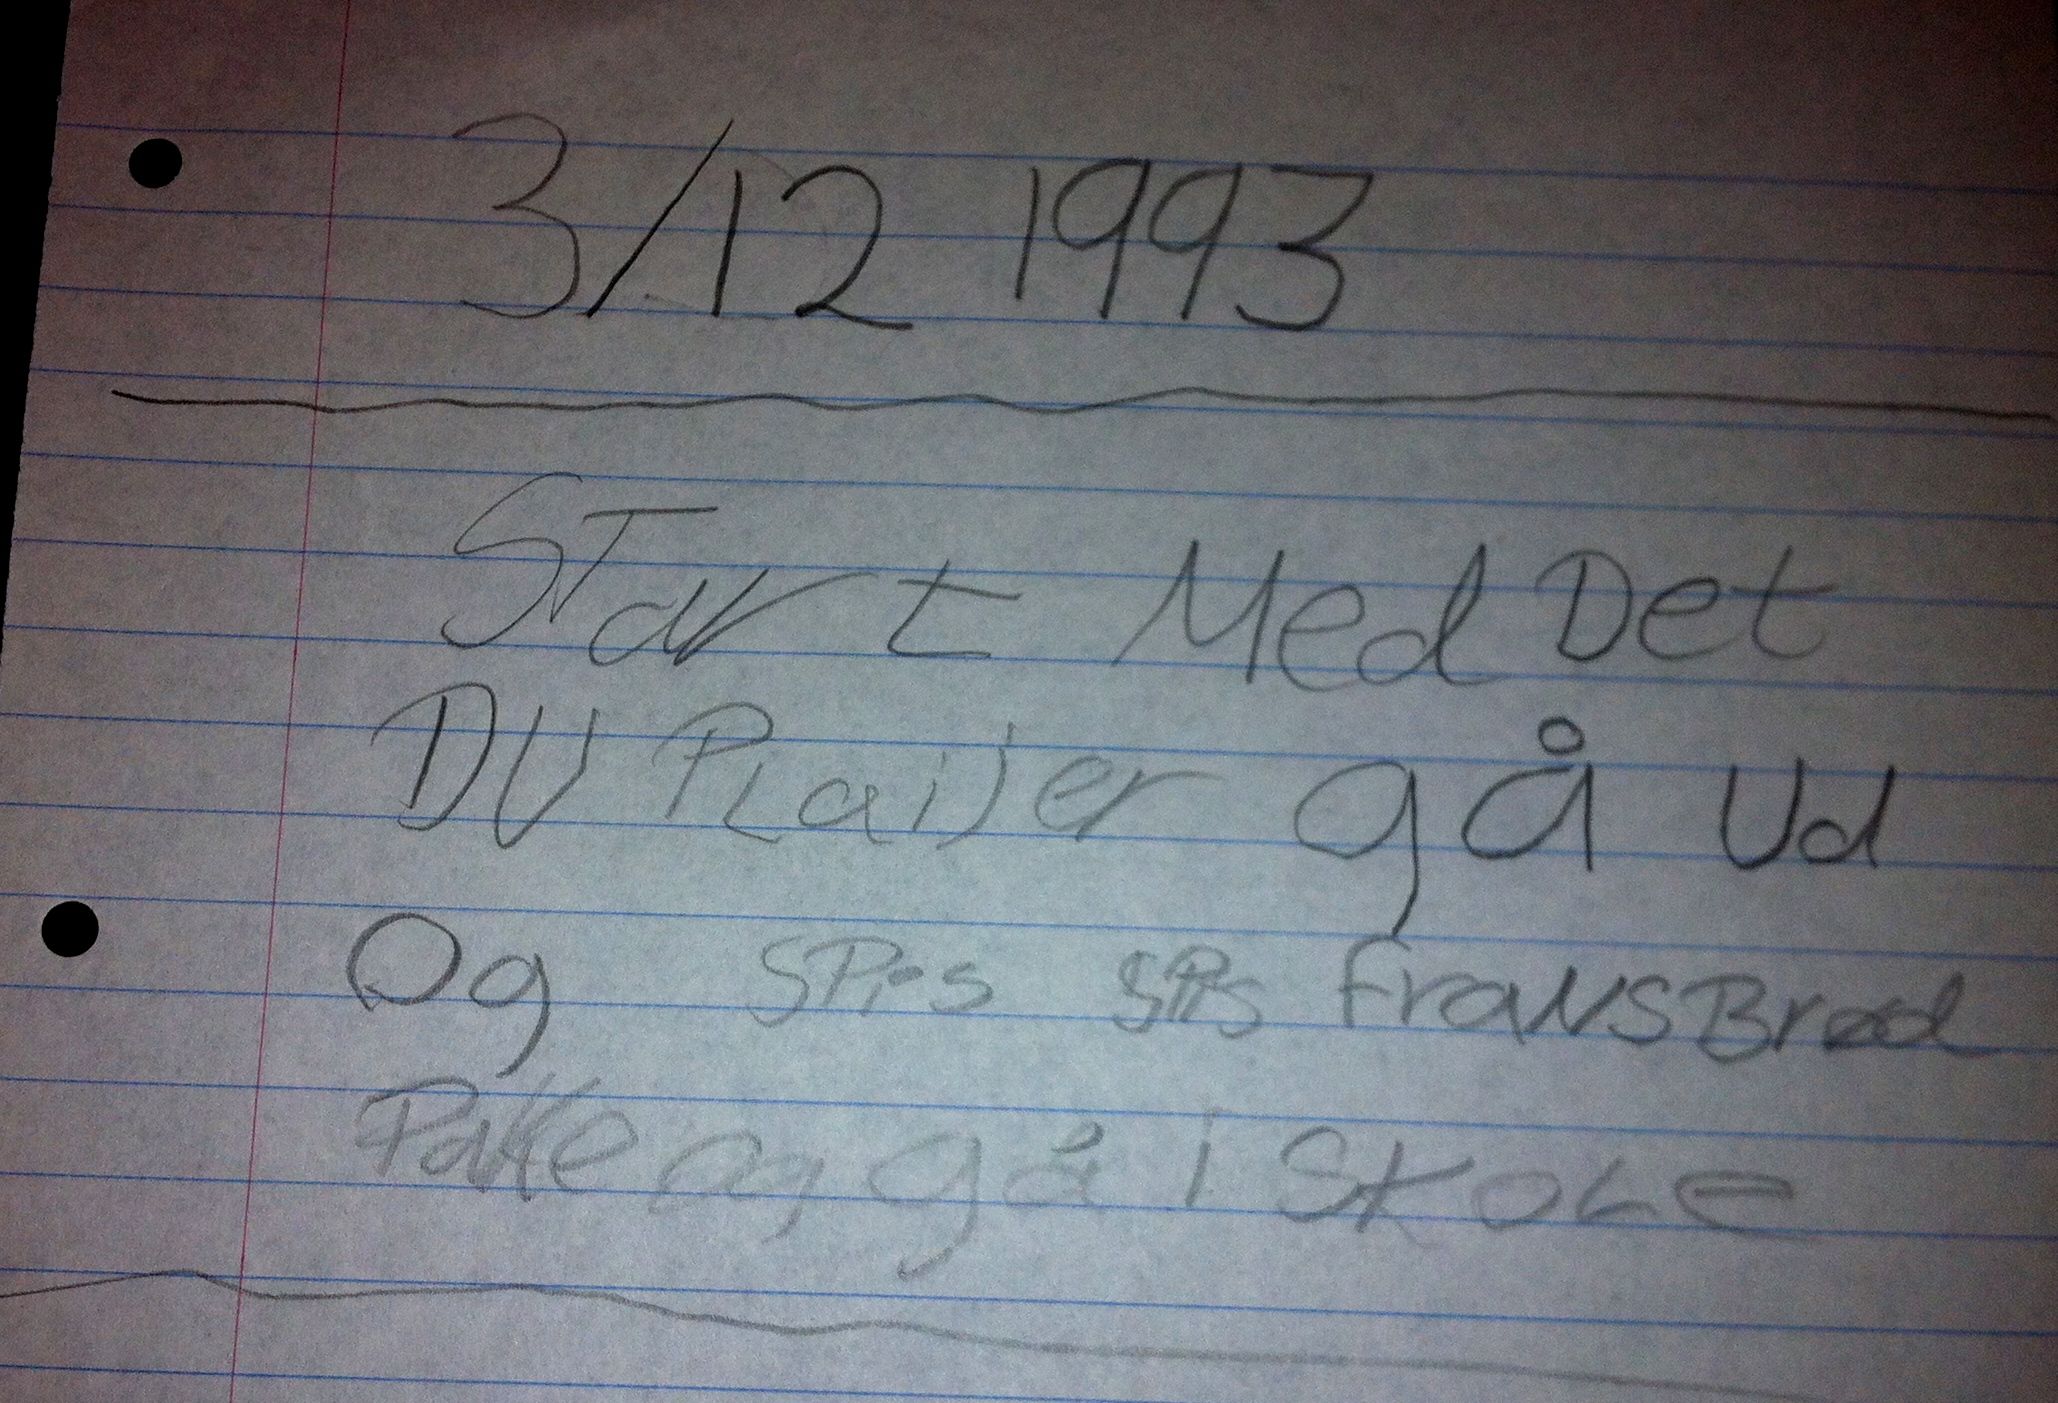 3/12 1993
START Med Det
DU PLaijer gå Ud
Og SPis SPis FraNSBrød
Pakke og gå i SKOLe